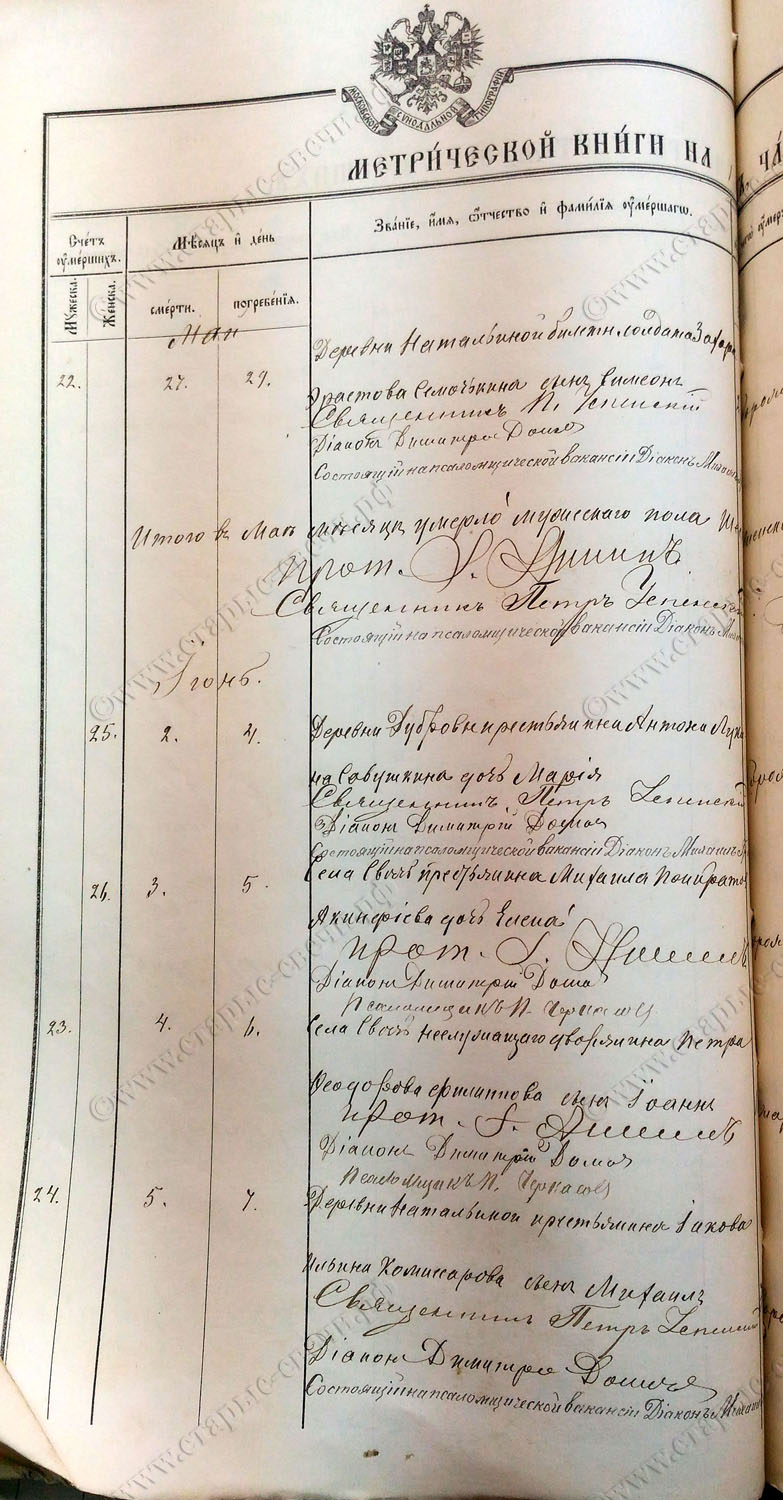 МОСКОВСКОЙ СѴНОДАЛЬНОЙ ТИПОГРАФІИ
МЕТРИ́ЧЕСКОЙ КНИ́ГИ НА
Счетъ оумершихъ.
Мѣсяцъ и день
Званіе, имя, отчество и фамилія оумершагѡ.
Мужеска.
Женска.
смерти.
погребенія.
Маи
Деревни Натальиной билетн. солдата Захара
22. 27. 29.
Ерастова Семочькина сынъ Симеонъ
Священникъ П. Успенскій
Діаконъ Димитрій
Состоящій на псаломщической вакансіи Діаконъ
Итого въ Маѣ мѣсяцѣ умерло мужескаго пола
прот. І.
Священникъ Петръ Успенскій
Состоящій на псаломщической вакансіи Діаконъ
Іюнь.
25. 2. 4. Деревни Дубровки крестьянина Антона
на Савушкина дочь Марія
Священникъ Петръ Успенскій
Діаконъ Димитрій
Состоящій на псаломщической вакансіи Діаконъ Михаилъ
26. 3. 5. Села крестьянина Михаила
Акинфіева дочь Елена
прот. І.
Діаконъ Димитрій
Псаломщикъ П. Черкасов
23. 4. 6. Села неслужащаго дворянина Петра
Феодорова Филиппова сынъ Іоаннъ
прот. І.
Діаконъ Димитрій
Псаломщикъ П. Черкасов
24. 5. 7. Деревни Натальиной крестьянина Іакова
Ильина Комисарова сынъ Михаилъ
Священникъ Петръ Успенскій
Діаконъ Димитрій
Состоящій на псаломщической вакансіи Діаконъ
©www.старые-свечи.рф